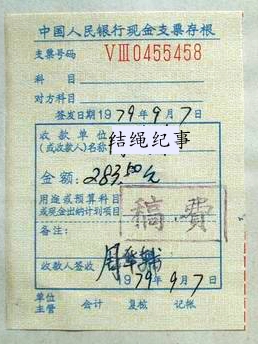 中国人民银行现金支票存根
支票号码 VIII0455458
科目
对方科目
签发日期1979年9月7日
收款单位
(或收款人)名称
结绳纪事
金额：283.50元
用途或预算科目
或现金出纳计划项目
稿费
备注：
收款人签收
1979年9月7日
单位
主管 会计 复核 记帐